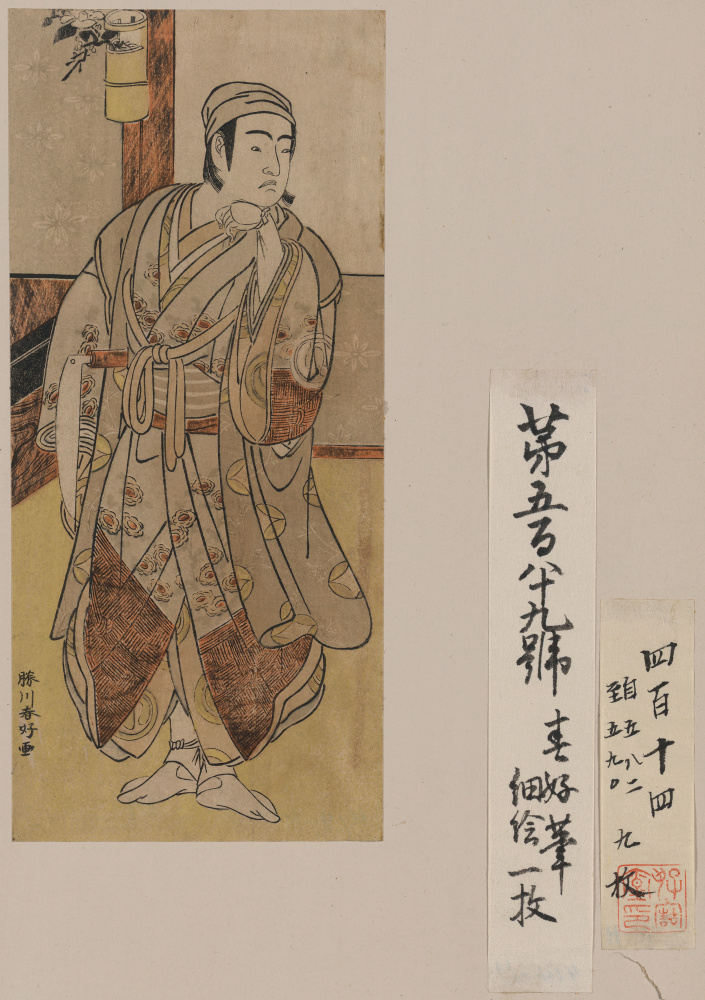 勝川春好画
第五百八十九號
春好筆
細絵一枚
四百十四
自五八二
至五九〇
九枚